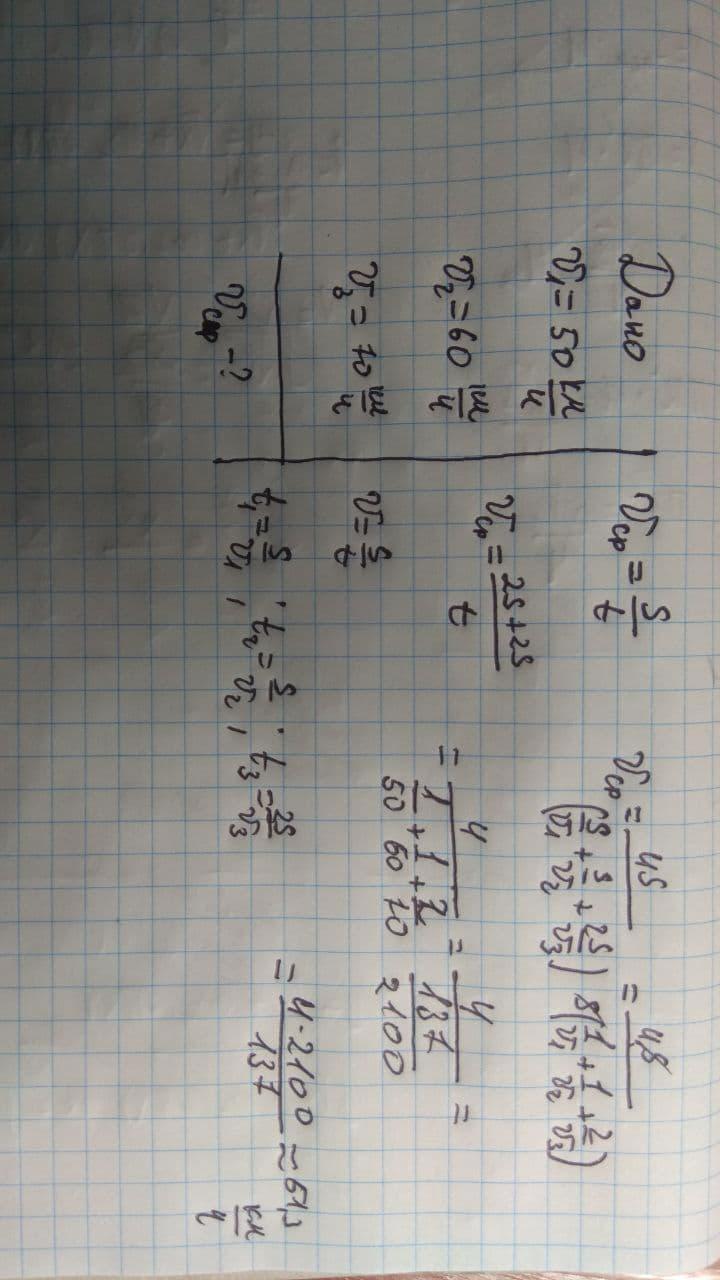 Дано
v₁ = 50 км/ч
v₂ = 60 км/ч
v₃ = 70 км/ч
vср - ?
vср = S/t
vср = (2S+2S)/t
v = S/t
t₁ = S/v₁ ; t₂ = S/v₂ ; t₃ = 2S/v₃
vср = 4S/(S/v₁ + S/v₂ + 2S/v₃) = 4S/S(1/v₁ + 1/v₂ + 2/v₃)
= 4/(1/50 + 1/60 + 2/70) = 4/(137/2100) =
= 4·2100/137 ≈ 61,3 км/ч